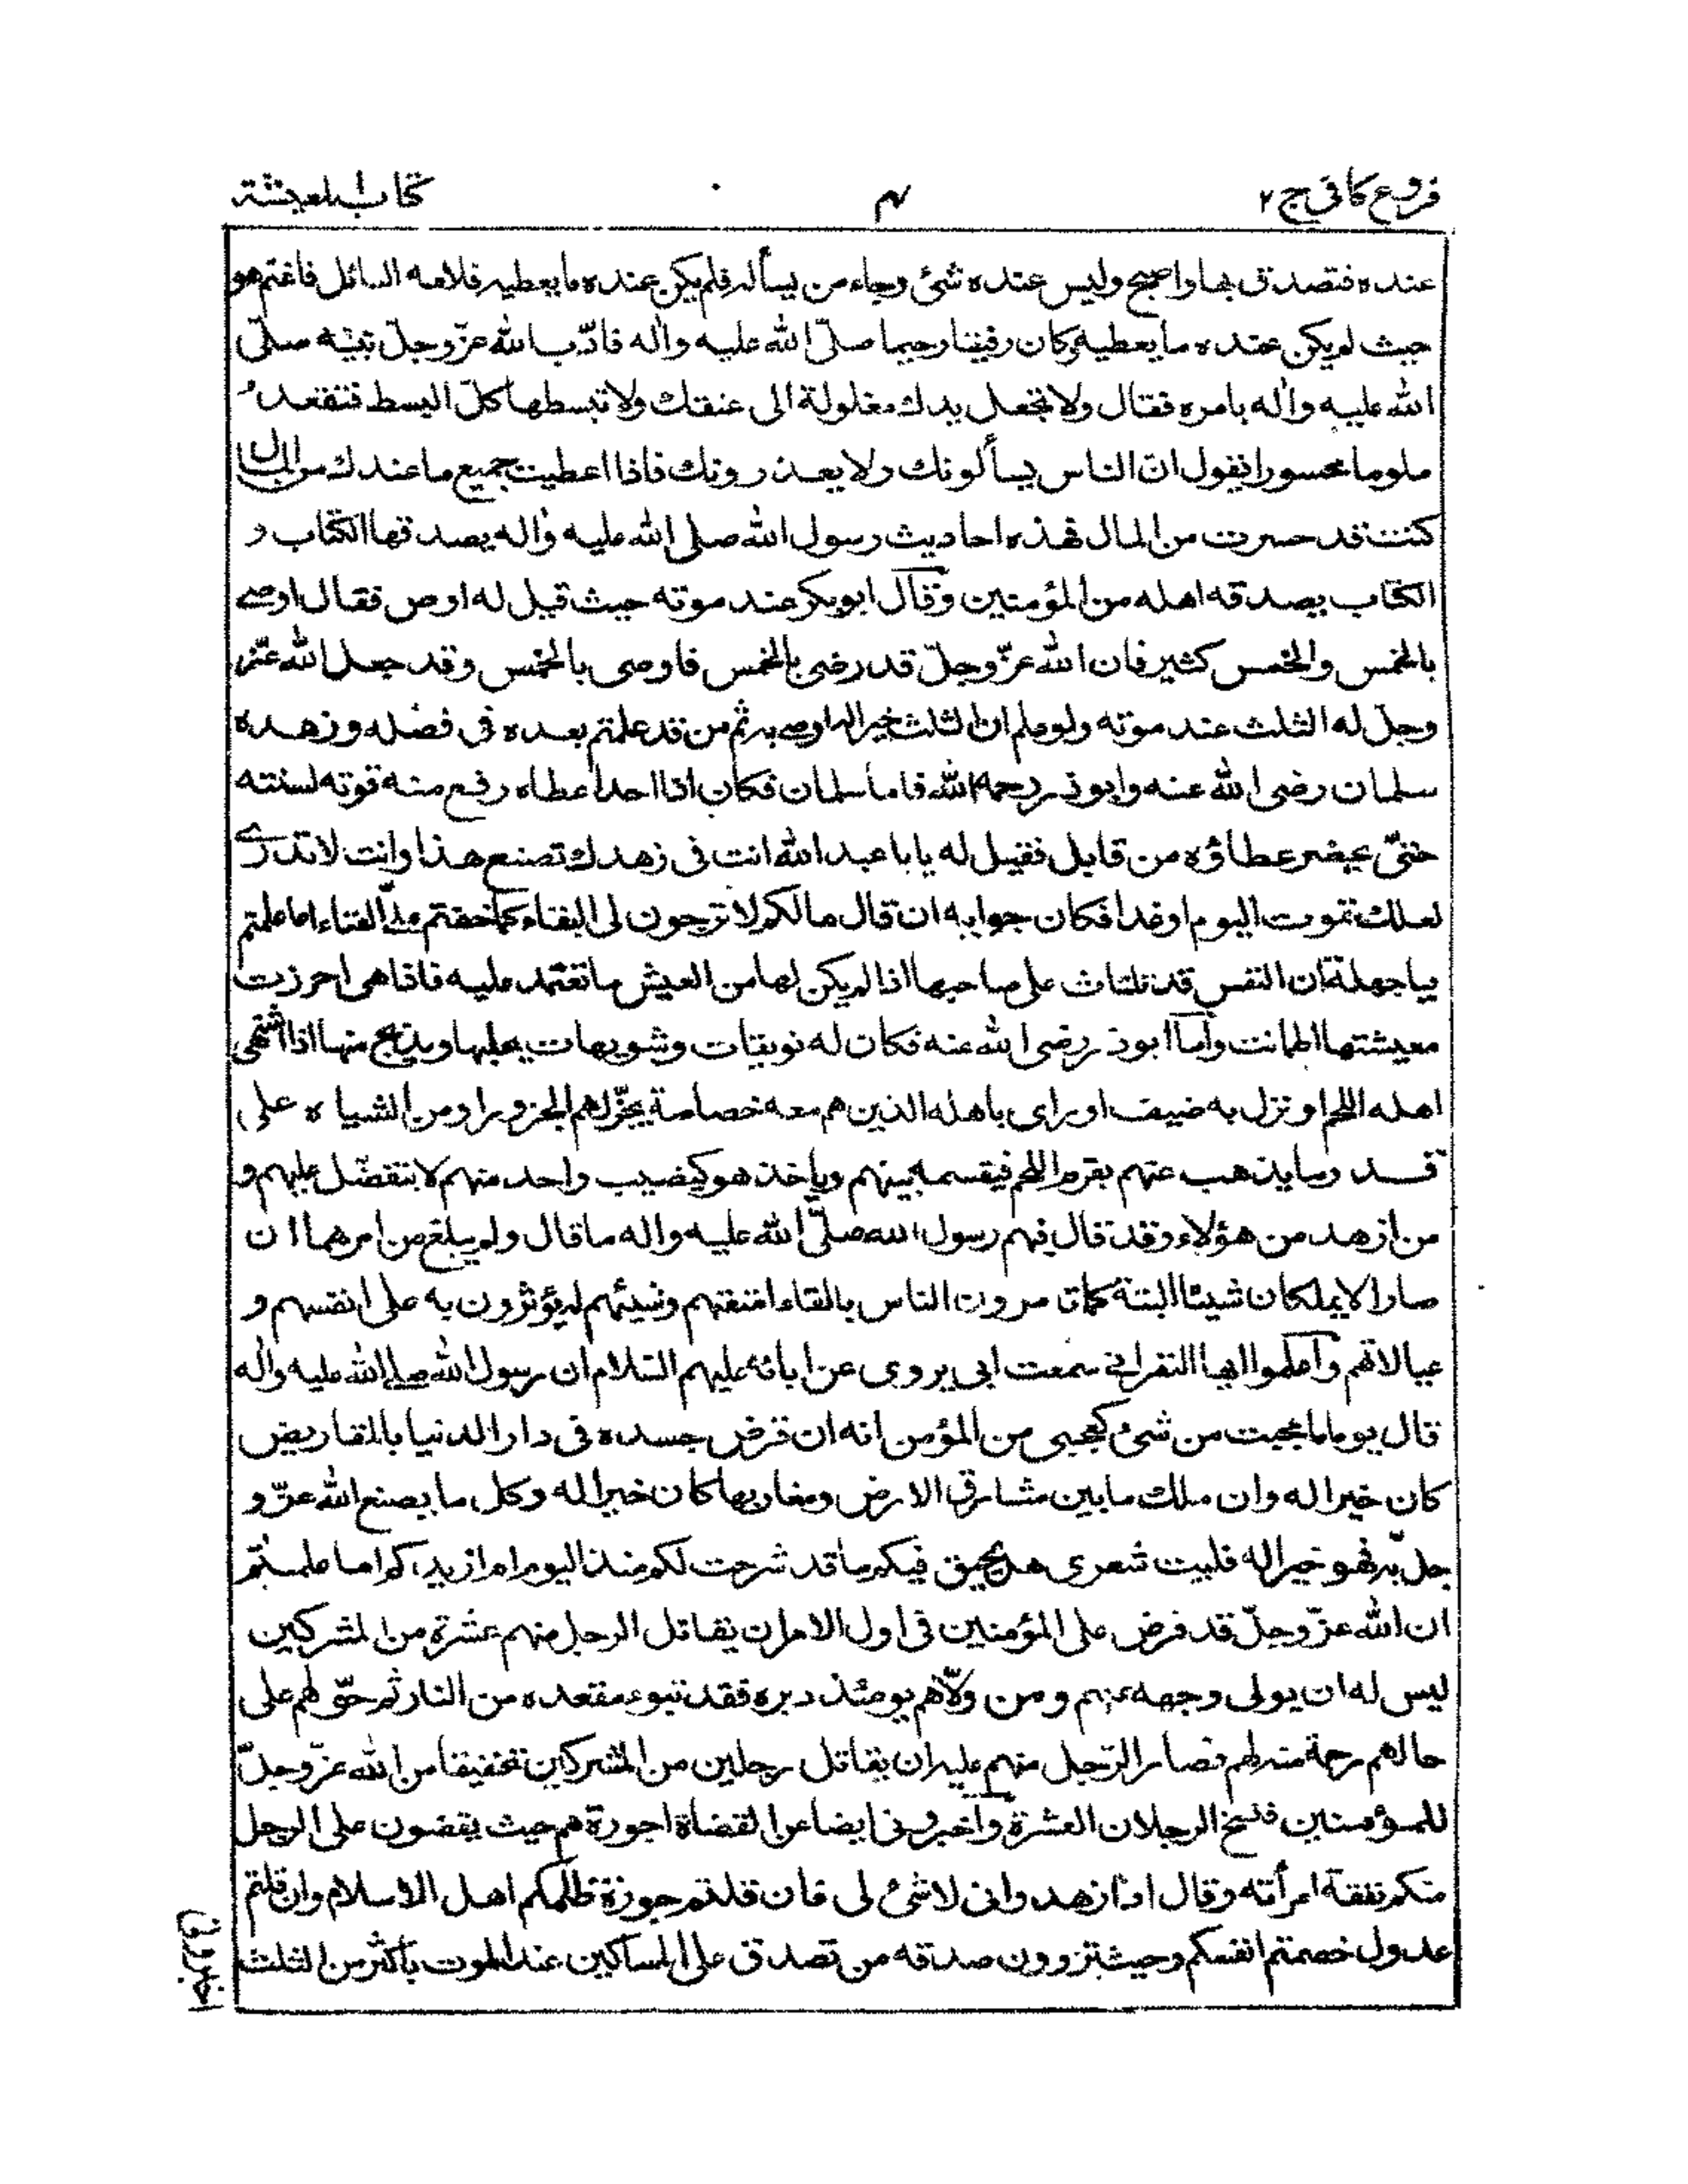 فروع كافي ج ٢
٤
كتاب المعيشة
عنده فتصدق بها واصبح وليس عنده شئ وجاء من يسأله فلم يكن عنده ما يعطيه فلامه السائل فاغتم هو
حيث لم يكن عنده ما يعطيه وكان رفيقا رحيما صلّى الله عليه واله فادّب الله عزّوجلّ نبيّه صلّى
الله عليه واله بامره فقال ولا تجعل يدك مغلولة الى عنقك ولا تبسطها كلّ البسط فتقعد
ملوما محسورا يقول انّ الناس يسألونك ولا يعذرونك فاذا اعطيت جميع ما عندك من المال
كنت قد حسرت من المال فهذه احاديث رسول الله صلى الله عليه واله يصدقها الكتاب و
الكتاب يصدقه اهله من المؤمنين وقال ابوبكر عند موته حيث قيل له اوص فقال اوصى
بالخمس والخمس كثير فان الله عزّوجلّ قد رضى بالخمس فاوصى بالخمس وقد جعل الله عزّ
وجلّ له الثلث عند موته ولو علم ان الثلث خير له اوصى به ثم من قد علمتم بعده فى فضله وزهده
سلمان رضى الله عنه وابوذر رحمه الله فاما سلمان فكان اذا اخذ اعطاه رفع منه قوته لسنته
حتّى يحضر عطاؤه من قابل فقيل له يا با عبد الله انت فى زهدك تصنع هذا وانت لا تدرى
لعلك تموت اليوم او غدا فكان جوابه ان قال ما لكم لا ترجون لى البقاء كما خفتم علىّ الفناء اما علمتم
يا جهلة ان النفس قد تلتاث على صاحبها اذا لم يكن لها من العيش ما تعتمد عليه فاذا هى احرزت
معيشتها اطمانت وأما ابوذر رضى الله عنه فكان له نويقات وشويهات يحلبها ويذبح منها اذا اشتهى
اهله اللحم او نزل به ضيف او راى باهله الذين هم معه خصاصة يجزّ لهم الجزور او من الشياه على
قدر ما يذهب عنهم بقرم اللحم فيقسمه بينهم وياخذ هو كنصيب واحد منهم لا يتفضّل عليهم و
من ازهد من هؤلاء وقد قال فيهم رسول الله صلّى الله عليه واله ما قال ولم يبلغ من امرهما ان
صارا لا يملكان شيئا البتة كما تامرون الناس بالقاء امتعتهم وشيئهم ليؤثرون به على انفسهم و
عيالاتهم وأعلموا ايها النفر انى سمعت ابى يروى عن ابائه عليهم السّلام ان رسول الله صلى الله عليه واله
قال يوما ما عجبت من شئ كعجبى من المؤمن انه ان قرض جسده فى دار الدنيا بالمقاريض
كان خيرا له وان ملك ما بين مشارق الارض ومغاربها كان خيرا له وكل ما يصنع الله عزّ و
جلّ به فهو خير له فليت شعرى هل يحيق فيكم ما قد شرحت لكم منذ اليوم ام ازيدكم اما علمتم
ان الله عزّ وجلّ قد فرض على المؤمنين فى اول الامر ان يقاتل الرجل منهم عشرة من المشركين
ليس له ان يولى وجهه عنهم ومن ولّاهم يومئذ دبره فقد تبوء مقعده من النار ثم حوّلهم على
حالهم رحمة منه لهم فصار الرّجل منهم عليه ان يقاتل رجلين من المشركين تخفيفا من الله عزّوجلّ
للمؤمنين فنسخ الرجلان العشرة وأخبرونى ايضا عن القضاة اجورة هم حيث يقضون على الرجل
منكم نفقة امرأته وقال اذا ازهد وانى لا شئ لى فان قلتم جورة ظلمكم اهل الاسلام وان قلتم
عدول خصمتم انفسكم وحيث تردون صدقه من تصدق على المساكين عند الموت باكثر من الثلث